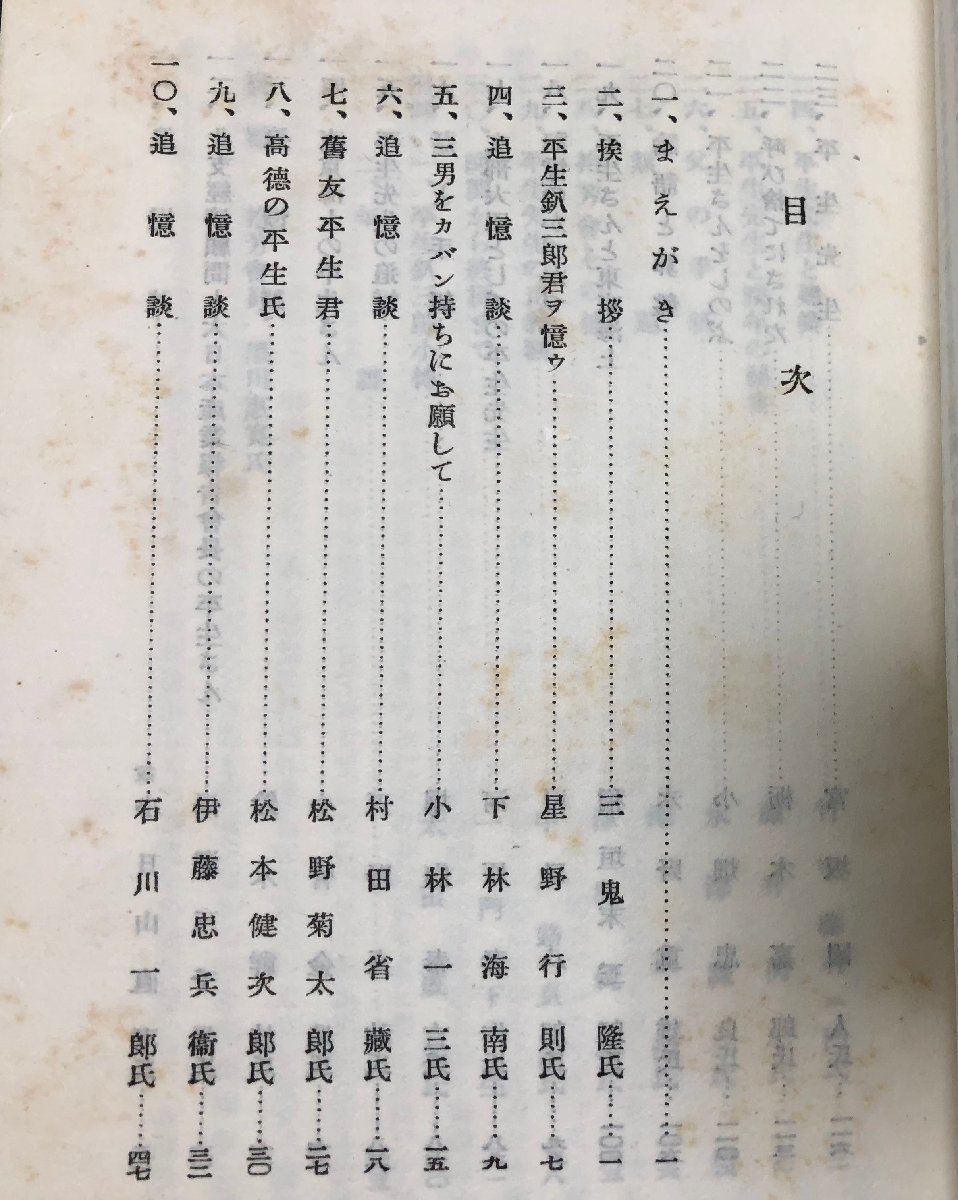 目次
一、まえがき……一
二、挨拶……三鬼隆氏……一
三、平生釟三郎君ヲ憶ゥ……星野行則氏……七
四、追憶談……下林海南氏……九
五、三男をカバン持ちにお願して……小林一三氏……一五
六、追憶談……村田省藏氏……一八
七、舊友平生君……松野菊太郎氏……二七
八、高德の平生氏……松本健次郎氏……三〇
九、追憶談……伊藤忠兵衞氏……三二
一〇、追憶談……石川一郎氏……四七